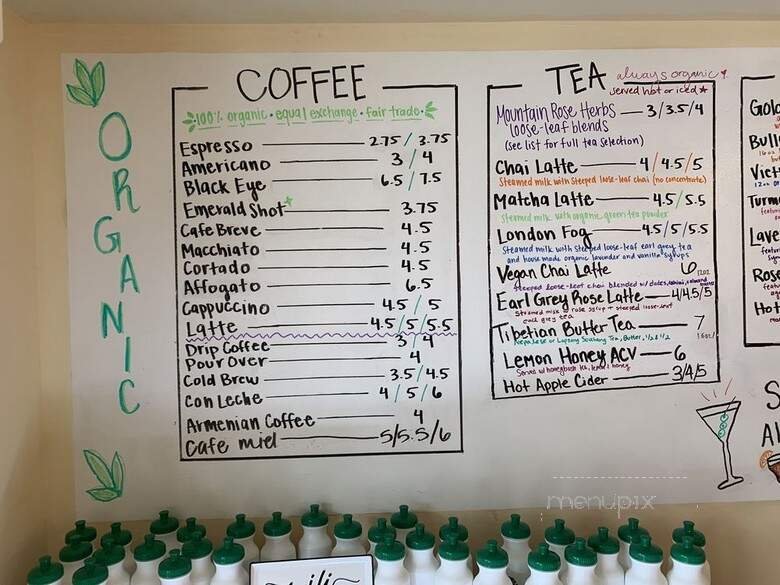 ORGANIC
COFFEE
100% organic • equal exchange • fair trade
Espresso 2.75 / 3.75
Americano 3 / 4
Black Eye 6.5 / 7.5
Emerald Shot 3.75
Cafe Breve 4.5
Macchiato 4.5
Cortado 4.5
Affogato 6.5
Cappuccino 4.5 / 5
Latte 4.5/5/5.5
Drip Coffee 3/4
Pour Over 4
Cold Brew 3.5/4.5
Con Leche 4/5/6
Armenian Coffee 4
Cafe miel 5/5.5/6
TEA always organic
served hot or iced
Mountain Rose Herbs 3/3.5/4
loose-leaf blends
(see list for full tea selection)
Chai Latte 4/4.5/5
Steamed milk with steeped loose-leaf chai (no concentrate)
Matcha Latte 4.5/5.5
Steamed milk with organic green tea powder
London Fog 4.5/5/5.5
Steamed milk with steeped loose-leaf earl grey tea
and house made organic lavender and vanilla syrups
Vegan Chai Latte 6 12oz
steeped loose-leaf chai blended w/ dates,
Earl Grey Rose Latte 4/4.5/5
Steamed milk rose syrup + steeped loose-leaf
earl grey tea
Tibetian Butter Tea 7
Nepalese or Lapsang Souchong Tea, Butter,
Lemon Honey ACV 6
Hot Apple Cider 3/4/5
Gold
Bull
Vict
Turm
Lave
Rose
Hot
S
Al
menupix